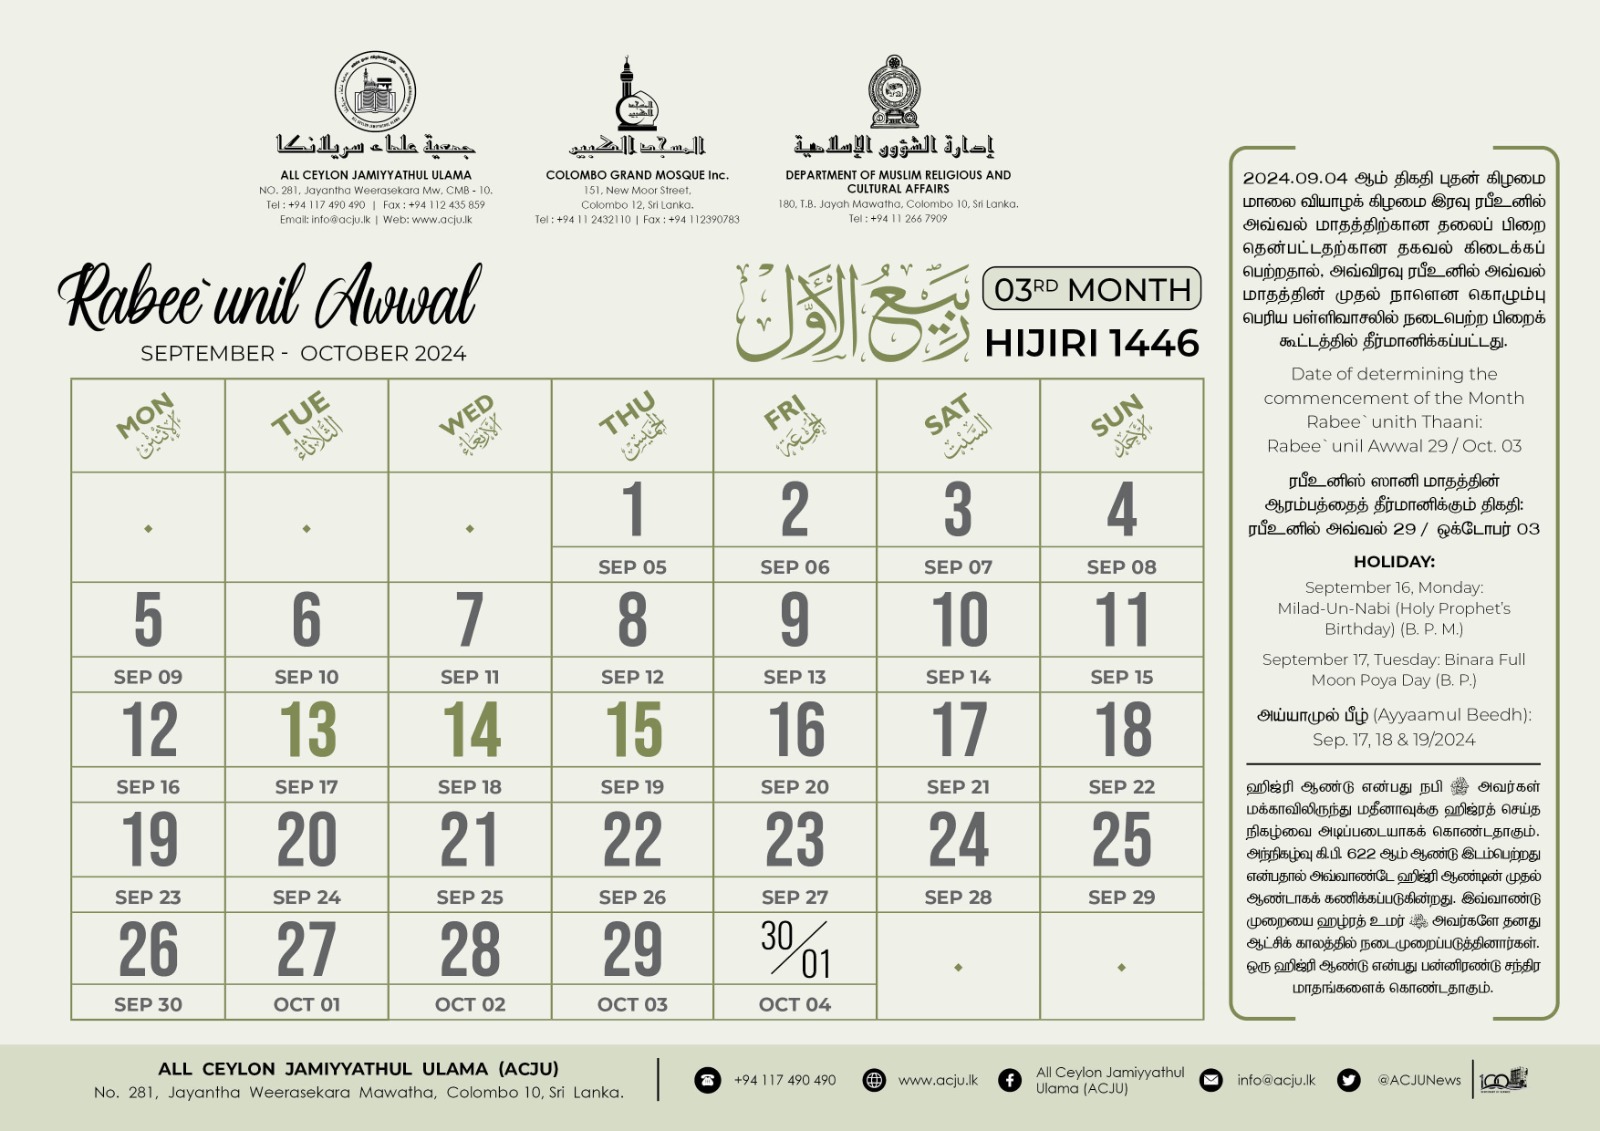 جمعية علماء سريلانكا
ALL CEYLON JAMIYYATHUL ULAMA
NO. 281, Jayantha Weerasekara Mw, CMB - 10.
Tel : +94 117 490 490 | Fax : +94 112 435 859
Email: info@acju.lk | Web: www.acju.lk
المسجد الكبير
COLOMBO GRAND MOSQUE Inc.
151, New Moor Street,
Colombo 12, Sri Lanka.
Tel : +94 11 2432110 | Fax : +94 112390783
إدارة الشؤون الإسلامية
DEPARTMENT OF MUSLIM RELIGIOUS AND
CULTURAL AFFAIRS
180, T.B. Jayah Mawatha, Colombo 10, Sri Lanka.
Tel : +94 11 266 7909
Rabee`unil Awwal
SEPTEMBER - OCTOBER 2024
رَبِيعُ الأَوَّل
03RD MONTH
HIJIRI 1446
MON TUE WED THU FRI SAT SUN
الاثنين الثلاثاء الأربعاء الخميس الجمعة السبت الأحد
1 2 3 4
SEP 05 SEP 06 SEP 07 SEP 08
5 6 7 8 9 10 11
SEP 09 SEP 10 SEP 11 SEP 12 SEP 13 SEP 14 SEP 15
12 13 14 15 16 17 18
SEP 16 SEP 17 SEP 18 SEP 19 SEP 20 SEP 21 SEP 22
19 20 21 22 23 24 25
SEP 23 SEP 24 SEP 25 SEP 26 SEP 27 SEP 28 SEP 29
26 27 28 29 30/01
SEP 30 OCT 01 OCT 02 OCT 03 OCT 04
2024.09.04 ஆம் திகதி புதன் கிழமை
மாலை வியாழக் கிழமை இரவு ரபீஉனில்
அவ்வல் மாதத்திற்கான தலைப் பிறை
தென்பட்டதற்கான தகவல் கிடைக்கப்
பெற்றதால், அவ்விரவு ரபீஉனில் அவ்வல்
மாதத்தின் முதல் நாளென கொழும்பு
பெரிய பள்ளிவாசலில் நடைபெற்ற பிறைக்
கூட்டத்தில் தீர்மானிக்கப்பட்டது.
Date of determining the
commencement of the Month
Rabee`unith Thaani:
Rabee`unil Awwal 29 / Oct. 03
ரபீஉனிஸ் ஸானி மாதத்தின்
ஆரம்பத்தைத் தீர்மானிக்கும் திகதி:
ரபீஉனில் அவ்வல் 29 / ஒக்டோபர் 03
HOLIDAY:
September 16, Monday:
Milad-Un-Nabi (Holy Prophet's
Birthday) (B. P. M.)
September 17, Tuesday: Binara Full
Moon Poya Day (B. P.)
அய்யாமுல் பீழ் (Ayyaamul Beedh):
Sep. 17, 18 & 19/2024
ஹிஜ்ரி ஆண்டு என்பது நபி ﷺ அவர்கள்
மக்காவிலிருந்து மதீனாவுக்கு ஹிஜ்ரத் செய்த
நிகழ்வை அடிப்படையாகக் கொண்டதாகும்.
அந்நிகழ்வு கி.பி. 622 ஆம் ஆண்டு இடம்பெற்றது
என்பதால் அவ்வாண்டே ஹிஜ்ரி ஆண்டின் முதல்
ஆண்டாகக் கணிக்கப்படுகின்றது. இவ்வாண்டு
முறையை ஹழ்ரத் உமர் அவர்களே தனது
ஆட்சிக் காலத்தில் நடைமுறைப்படுத்தினார்கள்.
ஒரு ஹிஜ்ரி ஆண்டு என்பது பன்னிரண்டு சந்திர
மாதங்களைக் கொண்டதாகும்.
ALL CEYLON JAMIYYATHUL ULAMA (ACJU)
No. 281, Jayantha Weerasekara Mawatha, Colombo 10, Sri Lanka.
+94 117 490 490
www.acju.lk
All Ceylon Jamiyyathul
Ulama (ACJU)
info@acju.lk
@ACJUNews
100